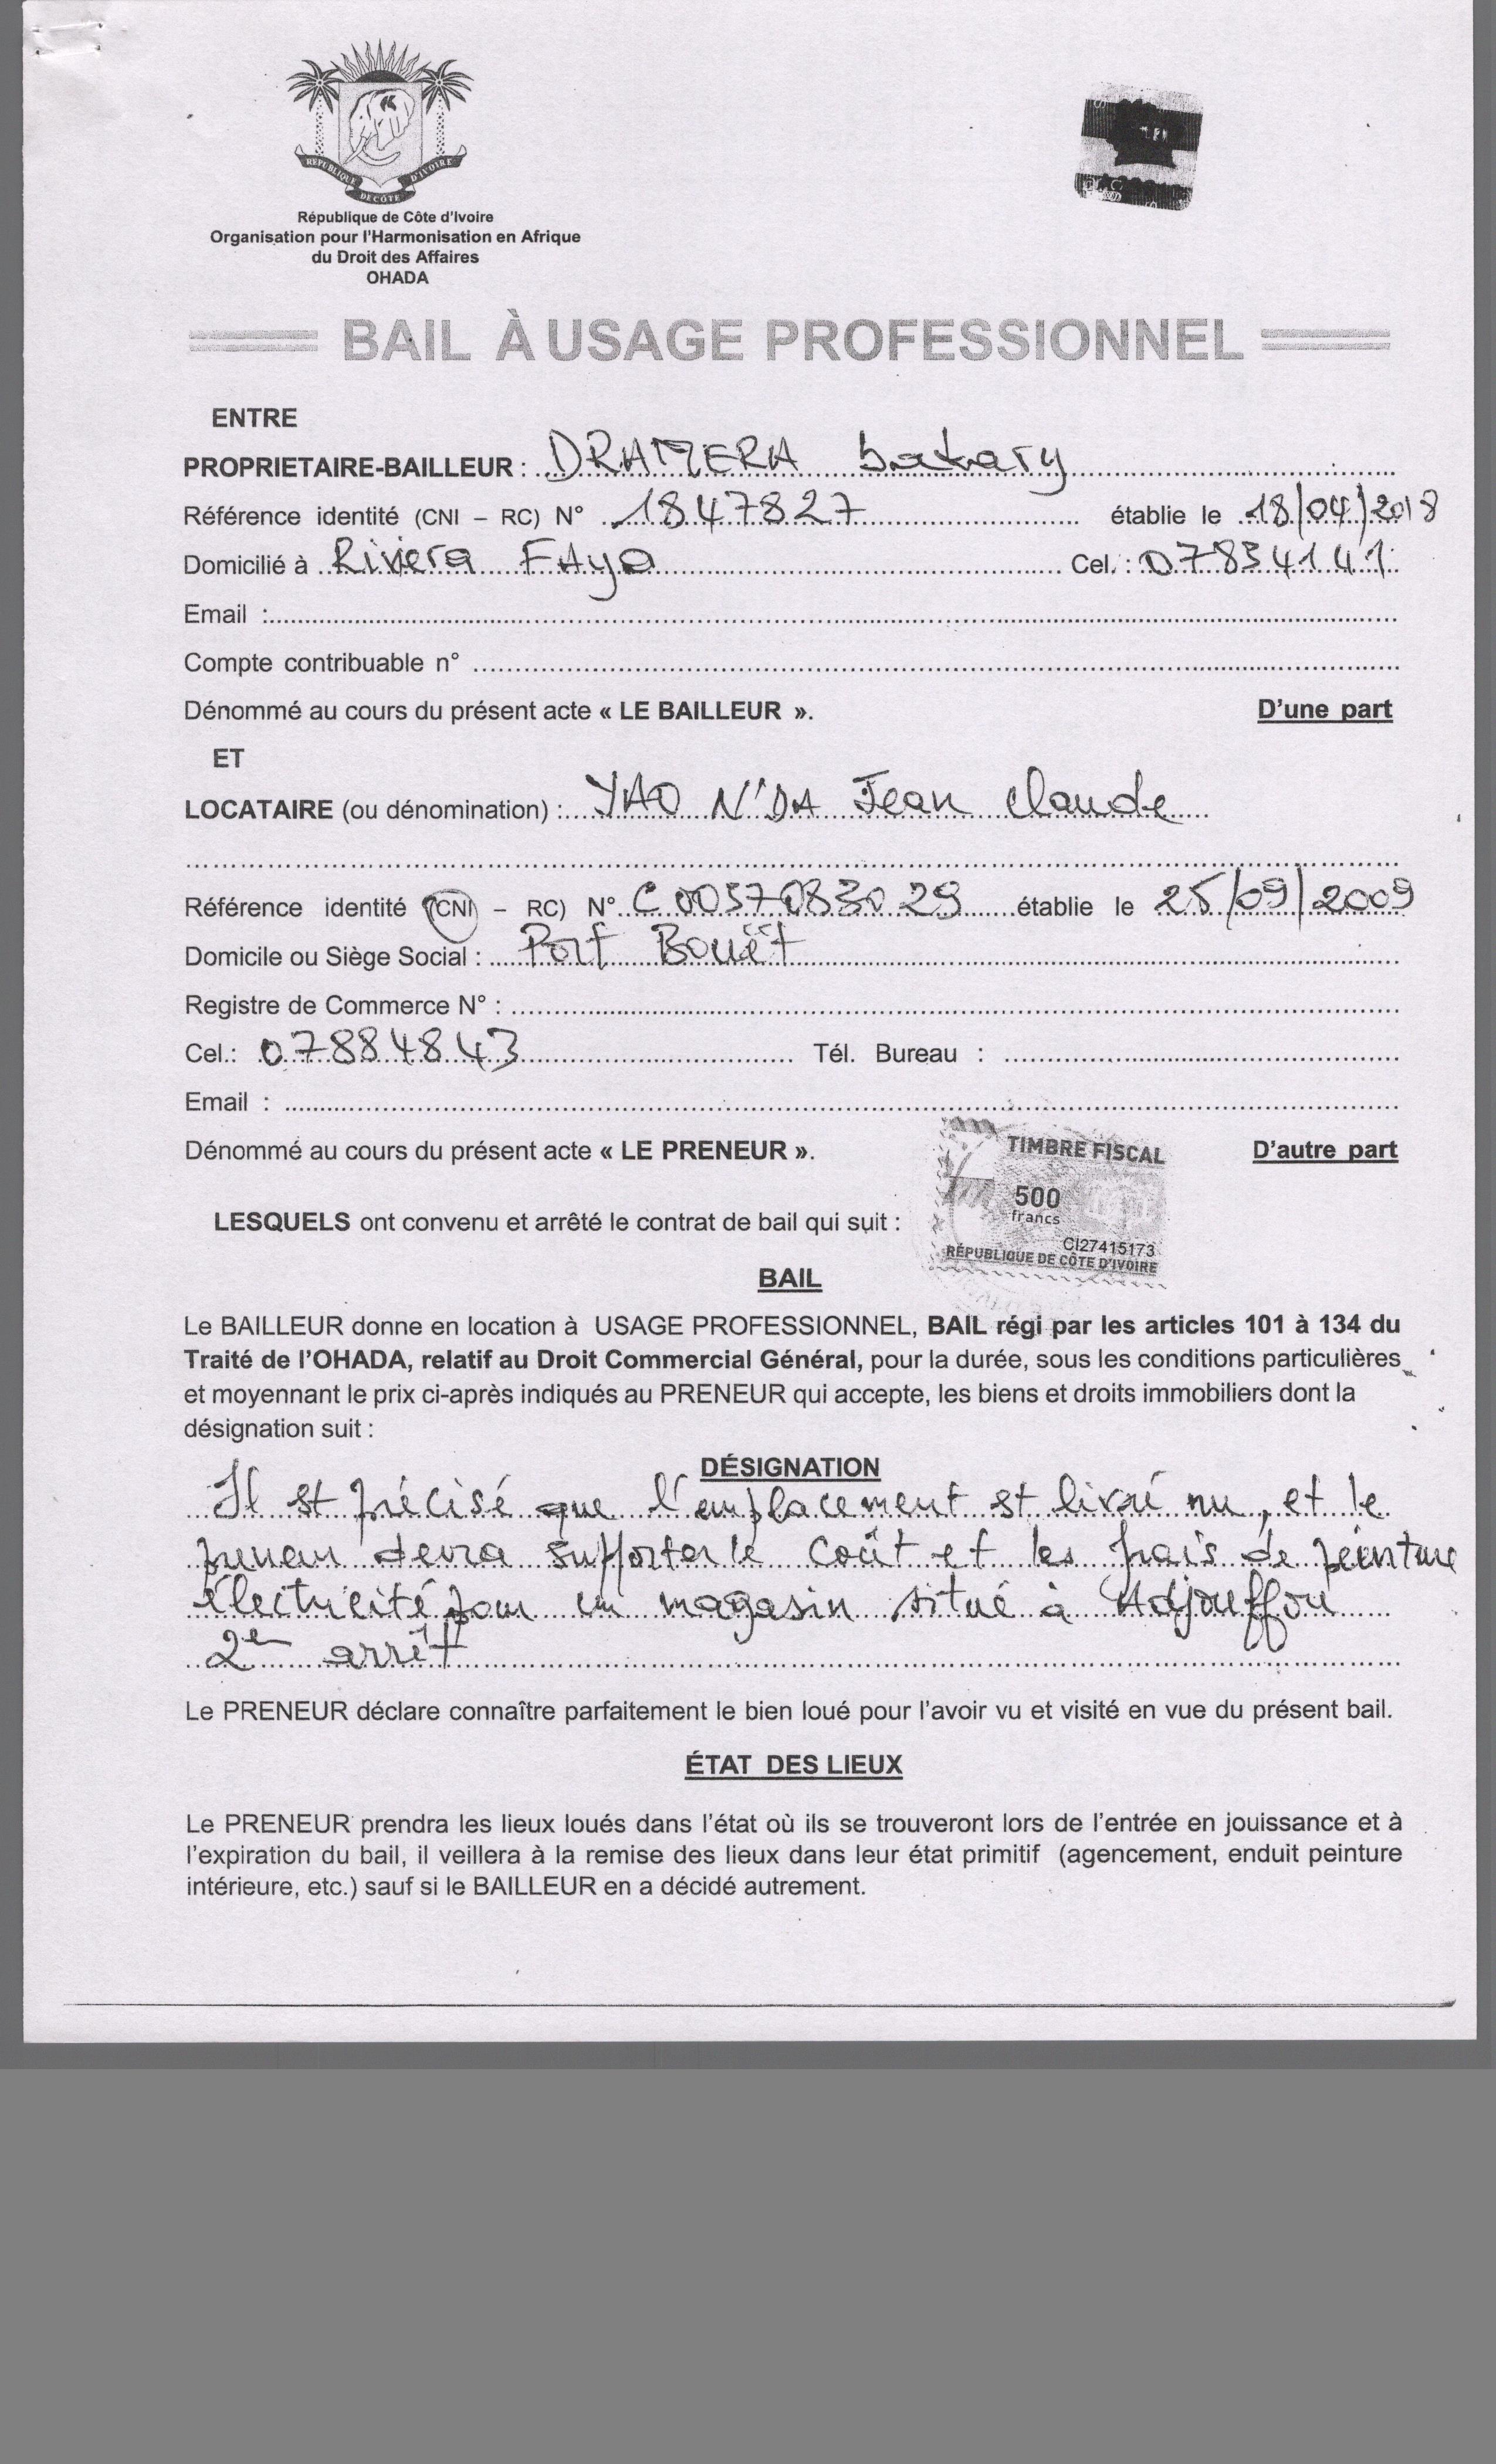 RÉPUBLIQUE DE CÔTE D'IVOIRE
République de Côte d'Ivoire
Organisation pour l'Harmonisation en Afrique
du Droit des Affaires
OHADA
BAIL À USAGE PROFESSIONNEL
ENTRE
PROPRIETAIRE-BAILLEUR : DRAMERA bakary
Référence identité (CNI – RC) N° 1847827 établie le 18/04/2018
Domicilié à Riviera FAya Cel. : 07834141
Email :
Compte contribuable n°
Dénommé au cours du présent acte « LE BAILLEUR ». D'une part
ET
LOCATAIRE (ou dénomination) : YAO N'DA Jean Claude
Référence identité (CNI – RC) N° C 0057083029 établie le 25/09/2009
Domicile ou Siège Social : Port Bouët
Registre de Commerce N° :
Cel.: 07884843 Tél. Bureau :
Email :
Dénommé au cours du présent acte « LE PRENEUR ». D'autre part
TIMBRE FISCAL
500
francs
CI27415173
RÉPUBLIQUE DE CÔTE D'IVOIRE
LESQUELS ont convenu et arrêté le contrat de bail qui suit :
BAIL
Le BAILLEUR donne en location à USAGE PROFESSIONNEL, BAIL régi par les articles 101 à 134 du
Traité de l'OHADA, relatif au Droit Commercial Général, pour la durée, sous les conditions particulières
et moyennant le prix ci-après indiqués au PRENEUR qui accepte, les biens et droits immobiliers dont la
désignation suit :
DÉSIGNATION
Il est précisé que l'emplacement est livré nu, et le
preneur devra supporter le coût et les frais de peinture
électricité pour un magasin situé à Adjouffou
2e arrêt
Le PRENEUR déclare connaître parfaitement le bien loué pour l'avoir vu et visité en vue du présent bail.
ÉTAT DES LIEUX
Le PRENEUR prendra les lieux loués dans l'état où ils se trouveront lors de l'entrée en jouissance et à
l'expiration du bail, il veillera à la remise des lieux dans leur état primitif (agencement, enduit peinture
intérieure, etc.) sauf si le BAILLEUR en a décidé autrement.